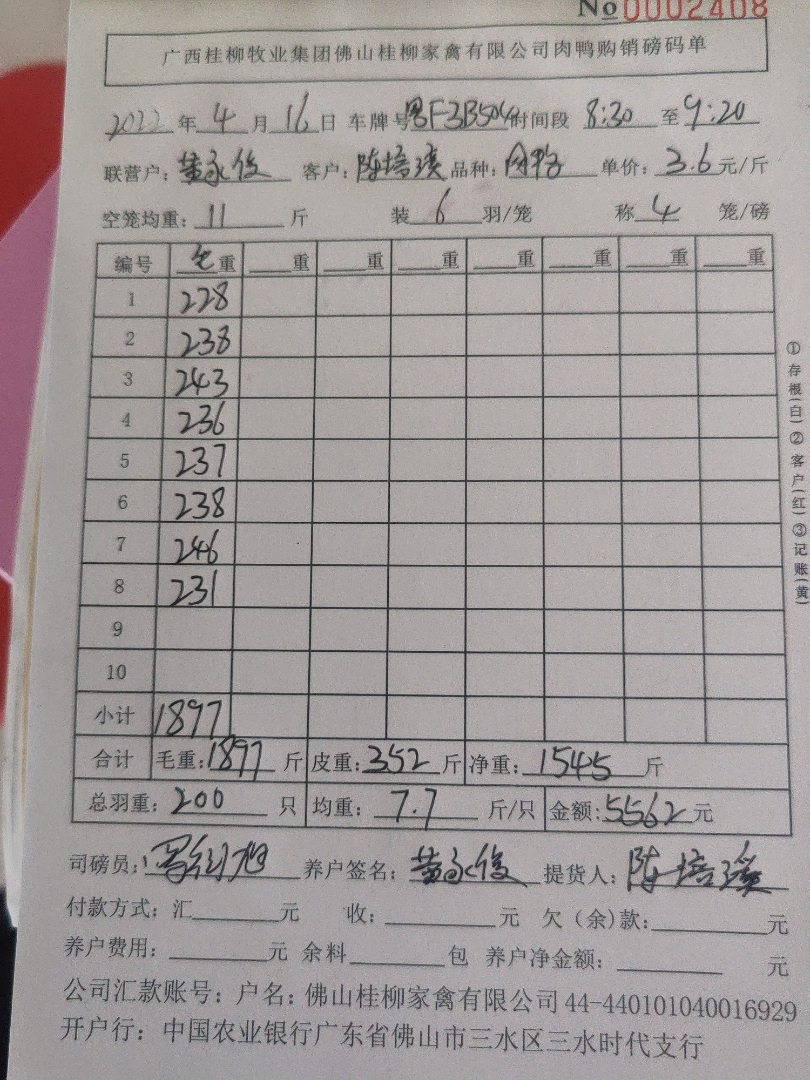 No 0002408
广西桂柳牧业集团佛山桂柳家禽有限公司肉鸭购销磅码单
2022年4月16日 车牌号粤F3B504 时间段 8:30至9:20
联营户：黄永俊 客户：陈培瑛 品种： 单价：3.6元/斤
空笼均重：11斤 装6羽/笼 称4笼/磅
编号 毛重 重 重 重 重 重 重 重
1 228
2 238
3 243
4 236
5 237
6 238
7 246
8 231
9
10
小计 1897
合计 毛重：1897斤 皮重：352斤 净重：1545斤
总羽重：200只 均重：7.7斤/只 金额：5562元
司磅员： 养户签名：黄永俊 提货人：陈培瑛
付款方式：汇 元 收： 元 欠（余）款： 元
养户费用： 元 余料 包 养户净金额： 元
公司汇款账号：户名：佛山桂柳家禽有限公司 44-440101040016929
开户行：中国农业银行广东省佛山市三水区三水时代支行
①存根(白)②客户(红)③记账(黄)